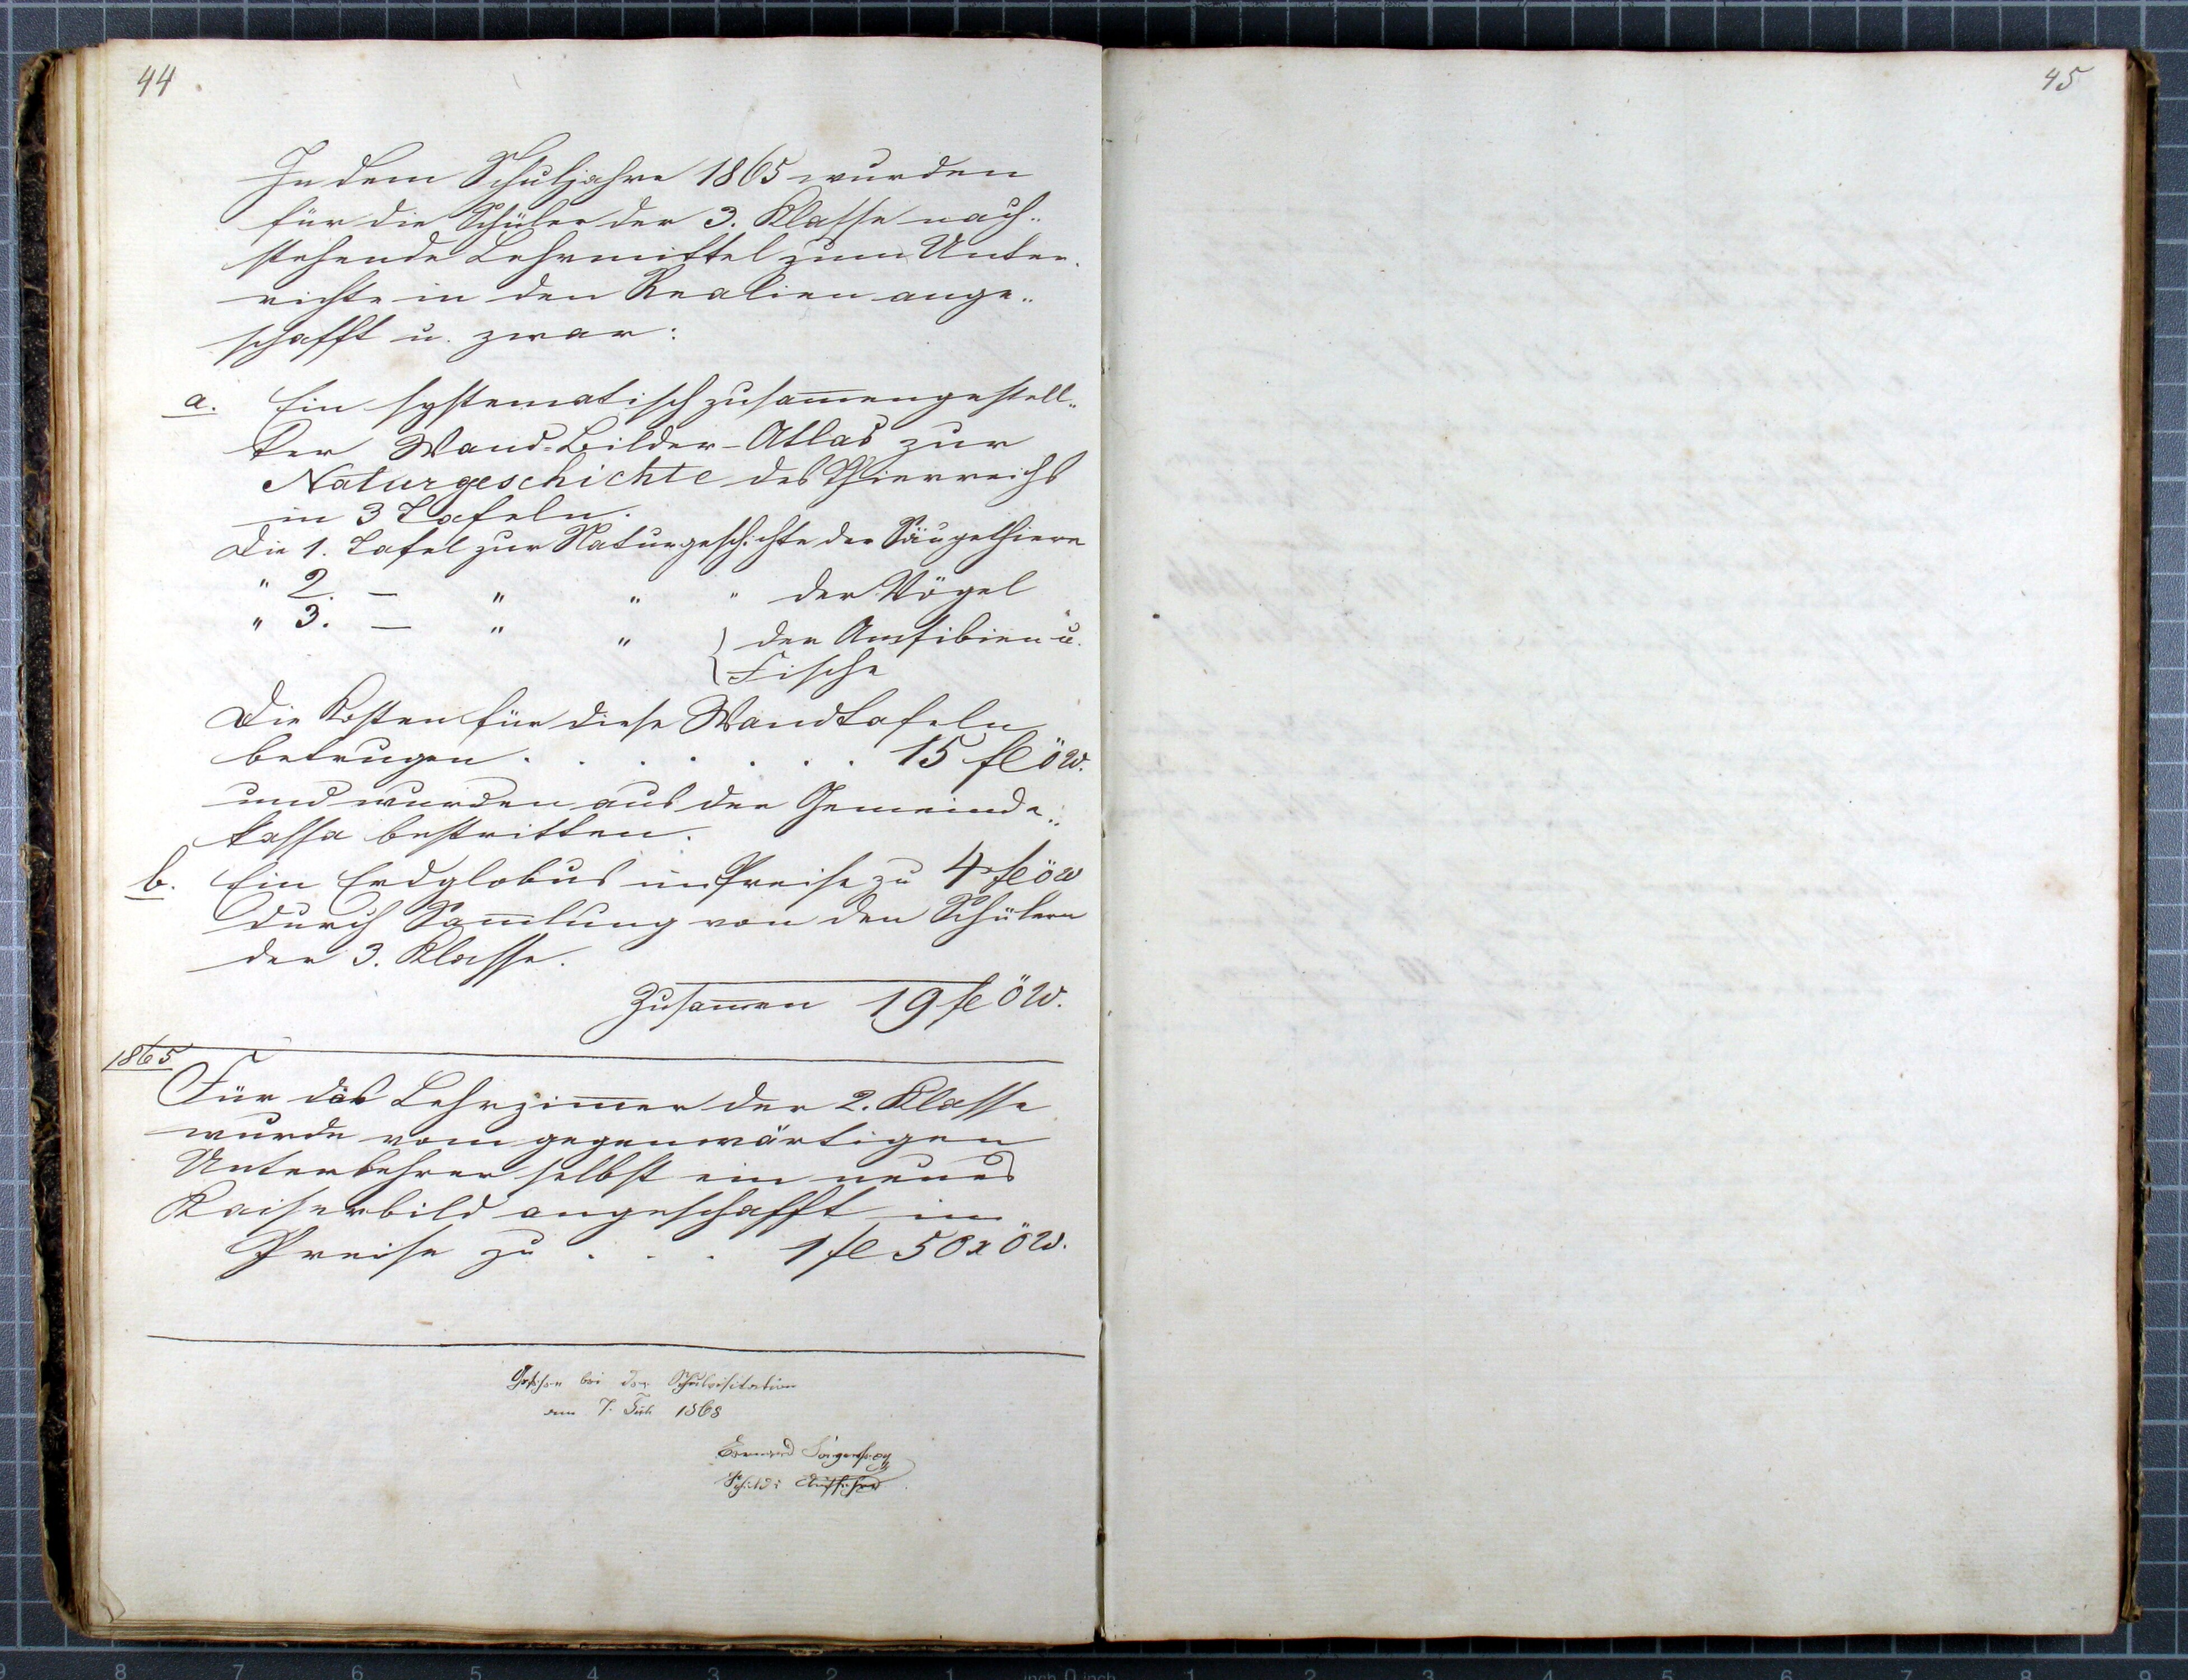 44
In dem Schuljahre 1865 wurden
für die Schüler der 3. Klasse nach-
stehende Lehrmittel zum Unter-
richte in den Realien ange-
schafft u. zwar:
a. Ein systematisch zusam̅engestell-
ter Wand-Bilder-Atlas zur
Naturgeschichte des Thierreichs
in 3 Tafeln.
Die 1. Tafel zur Naturgeschichte der Säugethiere
" 2. — " " " der Vögel
" 3. — " " } der Amfibien u.
Fische
Die Kosten für diese Wandtafeln
betrugen . . . . . . . 15 fl öw.
und wurden aus der Gemeinde-
kassa bestritten.
b. Ein Erdglobus im Preise zu 4 fl öw
durch Sam̅lung von den Schülern
der 3. Klasse.
Zusam̅en 19 fl öW.
1865
Für das Lehrzim̅er der 2. Klasse
wurde vom gegenwärtigen
Unterlehrer selbst ein neues
Kaiserbild angeschafft im
Preise zu . . . 1 fl 50 x öW.
Gesehen bei der Schulvisitation
am 7. Juli 1868
Bernard
Aufseher
45